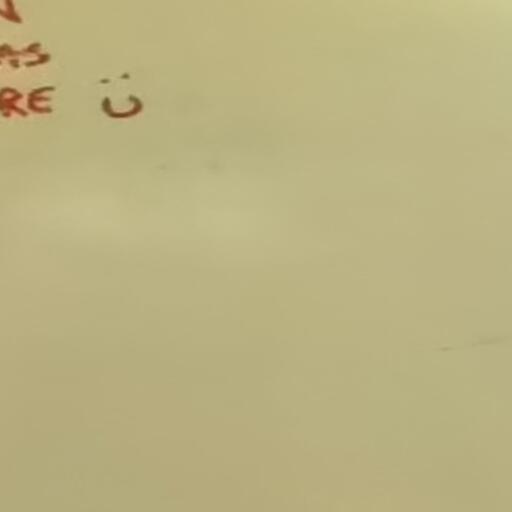 N
AS
RE :)